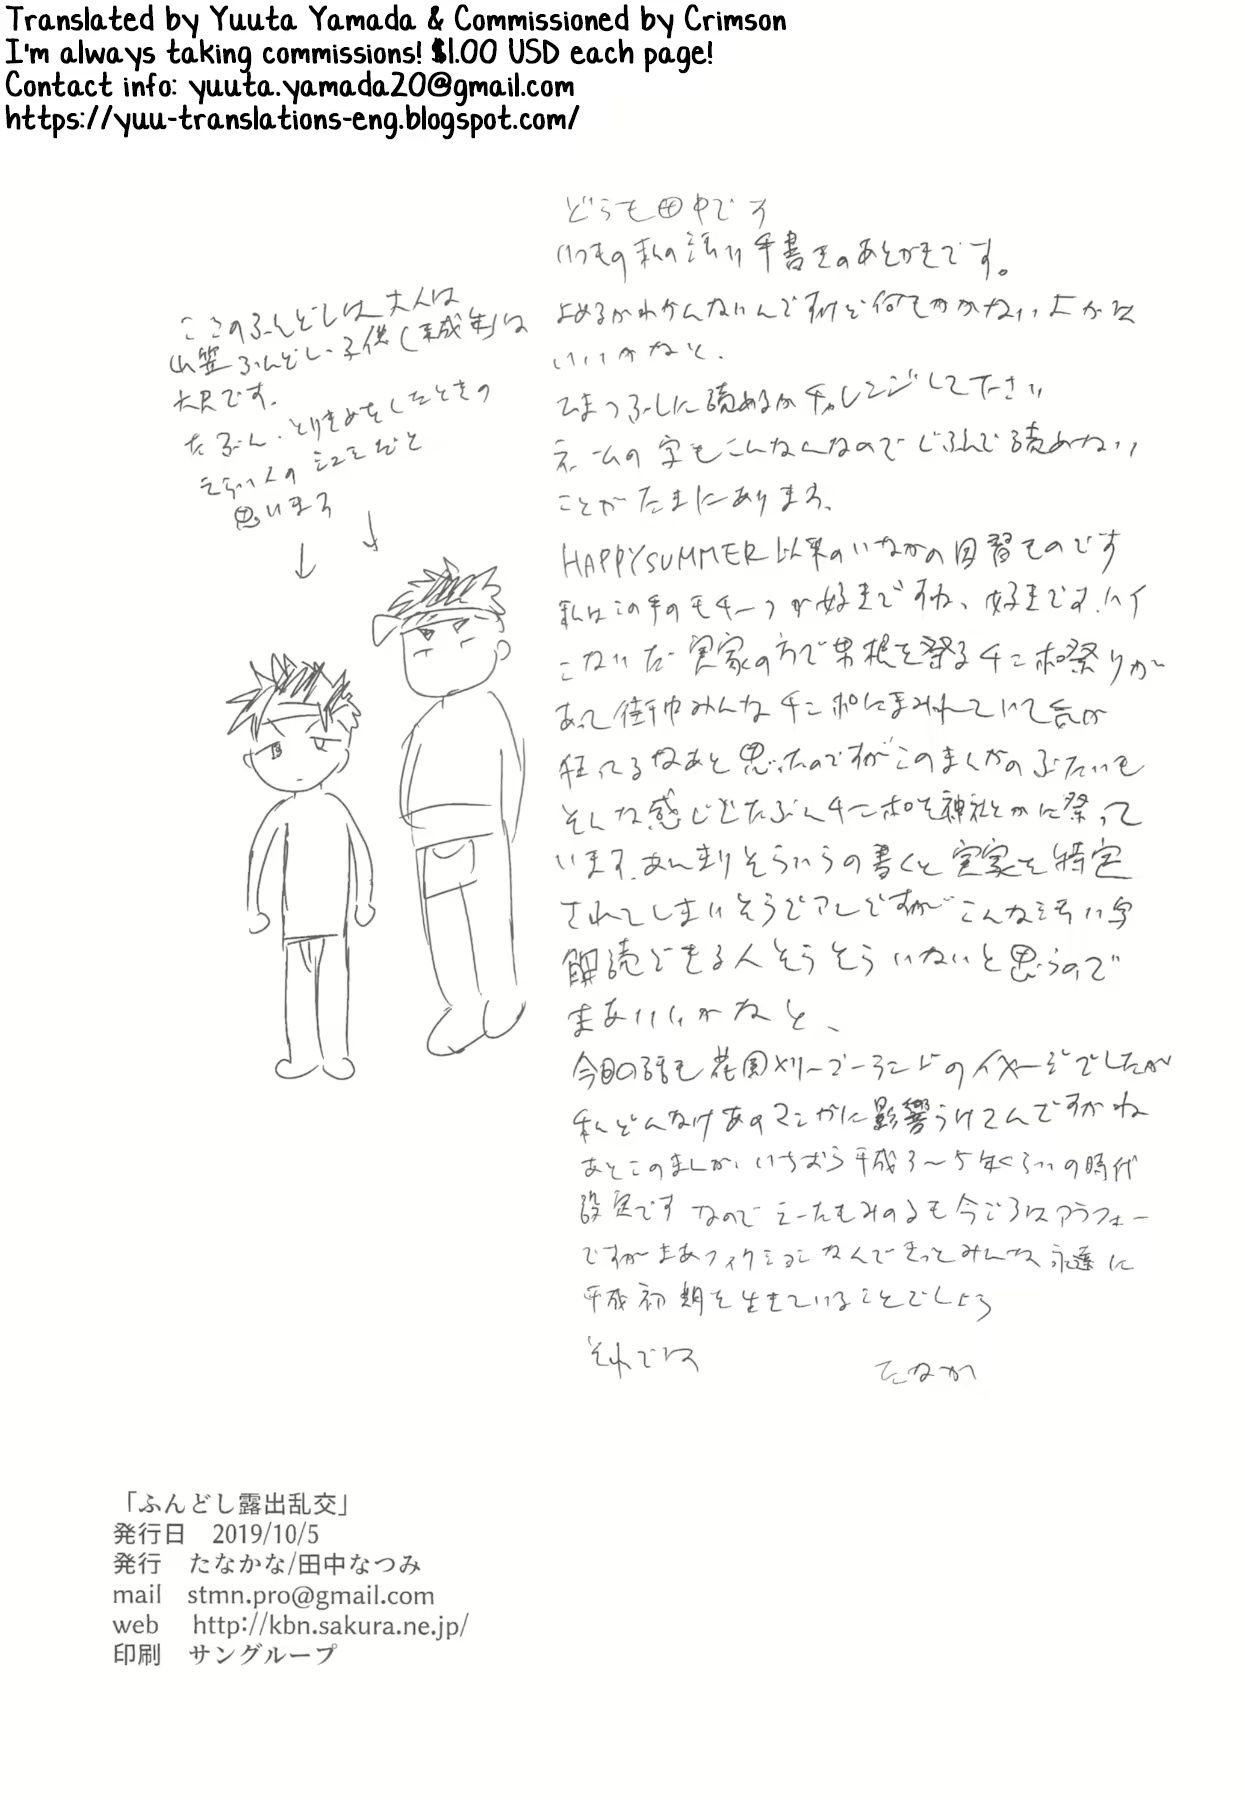 Translated by Yuuta Yamada & Commissioned by Crimson
I'm always taking commissions! $1.00 USD each page!
Contact info: yuuta.yamada20@gmail.com
https://yuu-translations-eng.blogspot.com/
どうも田中です
いつもの私の汚い手書きのあとがきです。
よめるかわかんないんですけど何もかかないよかは
いいかなと、
ひまつぶしに読めるかチャレンジして下さい
ネームの字もこんなんなのでじぶんで読めない
ことがたまにあります、
HAPPYSUMMER以来のいなかの因習ものです
私はこの手のモチーフが好きですね、好きです、ハイ
こないだ実家の方で男根を祭るチンポ祭りが
あって街中みんなチンポにまみれていて気が
狂ってるなあと思ったのですがこのまんがのぶたいも
そんな感じでたぶんチンポを神社とかに祭って
います、あんまりそういうの書くと実家を特定
されてしまいそうでアレですがこんな汚い字
解読できる人そうそういないと思うので
まあいいかなと、
今回の話も花園メリーゴーランドのイメージでしたが
私どんなけあのマンガに影響うけてんですかね
あとこのまんが、いちおう平成3〜5年くらいの時代
設定です なので みのるも今ごろはアラフォー
ですがまあフィクションなんできっとみんな永遠に
平成初期を生きていることでしょう
それでは
たなか
ふんどしは大人は
山笠ふんどし、子供(未成年)は
六尺です、
たぶん、とりきめをしたときの
えらい人のシュミだと
思います
「ふんどし露出乱交」
発行日 2019/10/5
発行 たなかな/田中なつみ
mail stmn.pro@gmail.com
web http://kbn.sakura.ne.jp/
印刷 サングループ